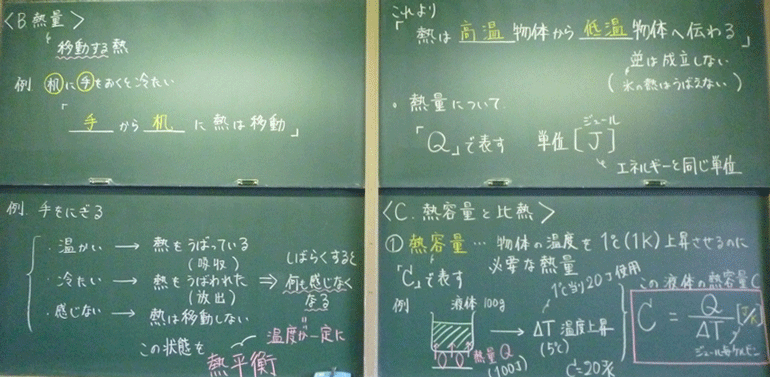 <B 熱量>
移動する熱
例 机に手をおくと冷たい
「手から机に熱は移動」
これより
「熱は高温物体から低温物体へ伝わる」
逆は成立しない
(氷の熱はうばえない)
・熱量について
「Q」で表す 単位[J]
ジュール
エネルギーと同じ単位
例. 手をにぎる
・温かい → 熱をうばっている
(吸収)
・冷たい → 熱をうばわれた
(放出)
・感じない → 熱は移動しない
⇒ しばらくすると
何も感じなく
なる
この状態を 熱平衡
温度が一定に
<C. 熱容量と比熱>
① 熱容量 … 物体の温度を1℃(1K)上昇させるのに
必要な熱量
「C」で表す
例 液体100g
熱量Q
(100J)
→ ΔT 温度上昇
(5℃)
1℃当り20J使用
C=20J/K
この液体の熱容量C
C = Q/ΔT [J/K]
ジュール毎ケルビン